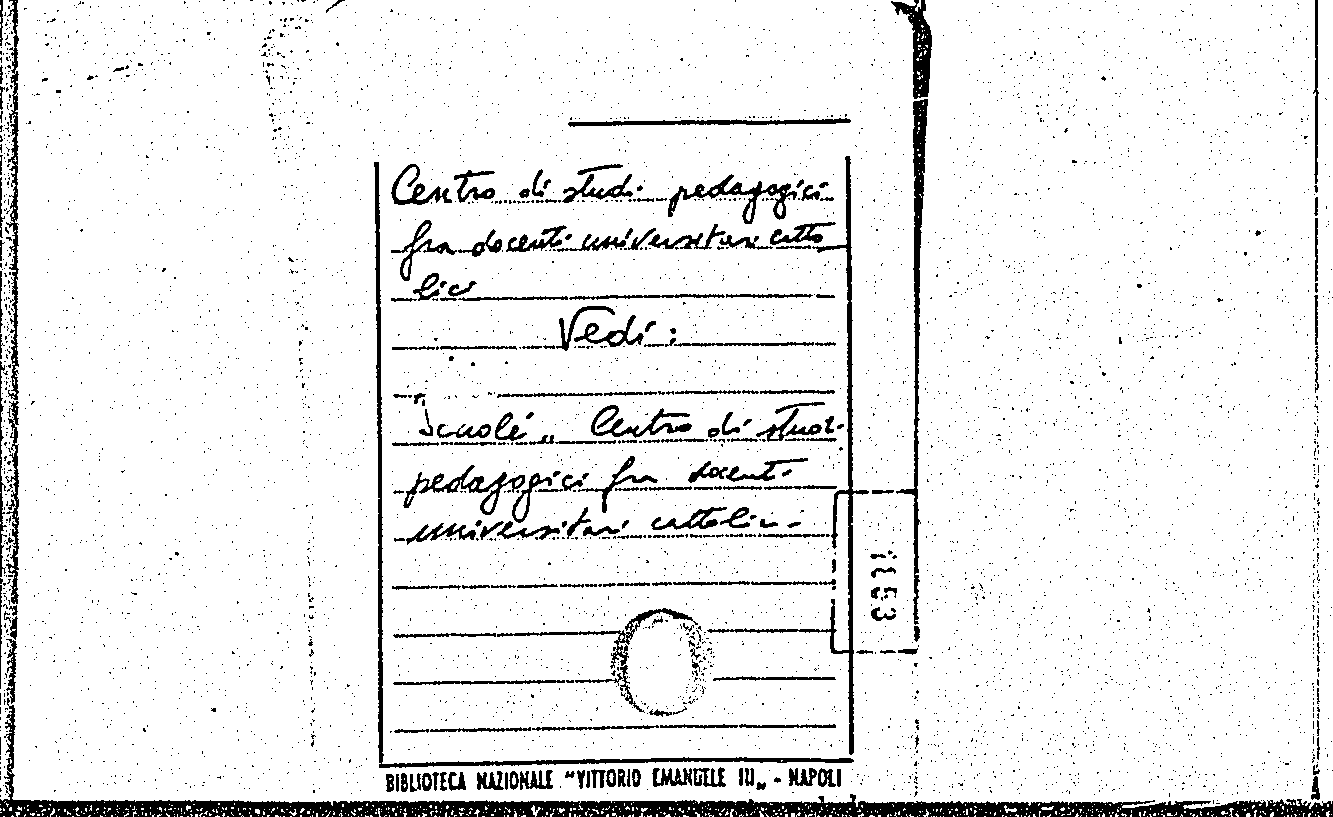 Centro di studi pedagogici
fra docenti universitari catto
lici
Vedi:
"Scuole„ Centro di studi
pedagogici fra docenti
universitari cattolici
1353
BIBLIOTECA NAZIONALE "VITTORIO EMANUELE III„ - NAPOLI